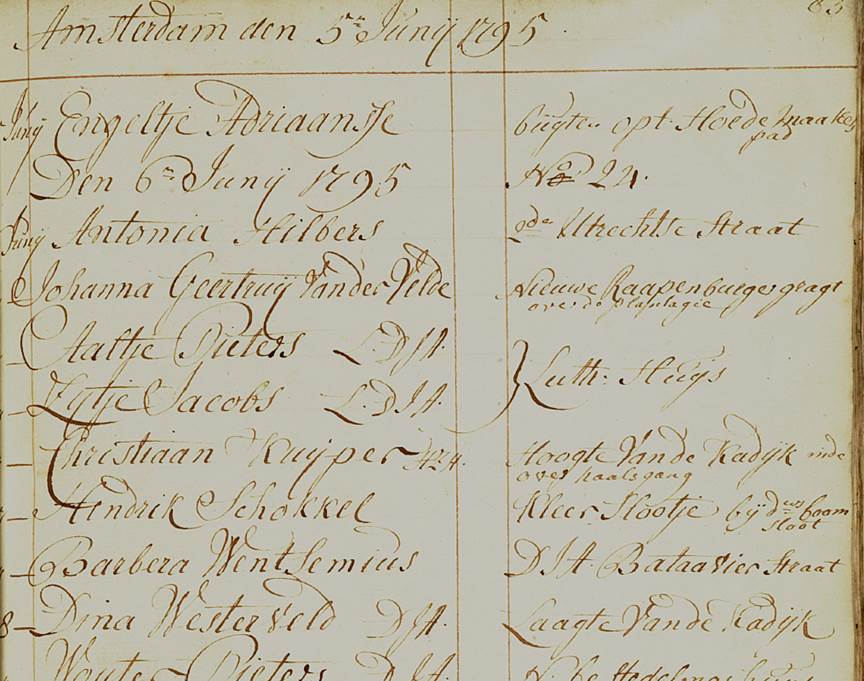 83
Amsterdam den 5en Junij 1795
Junij Engeltje Adriaansse buyten opt Hoede Maakers
pad
Den 6en Junij 1795 No 24.
Junij Antonia Hilbers 2de Utrechtse Straat
Johanna Geertruij Vander Velde Nieuwe Raapenburgergragt
over de
Aaltje Pieters L. DIA.
Luth: Huys
Zytje Jacobs L. DIA.
Christiaan Kuyper Hoogte Vande Kadijk
over haals gang
Hendrik Schokkel Kleer Slootje bij d boom
Sloot
Barbera Wentsemius DIA. Bataavier Straat
8 Dina Westerveld DIA. Laagte Vande Kadijk
Wouter Pieters DIA.